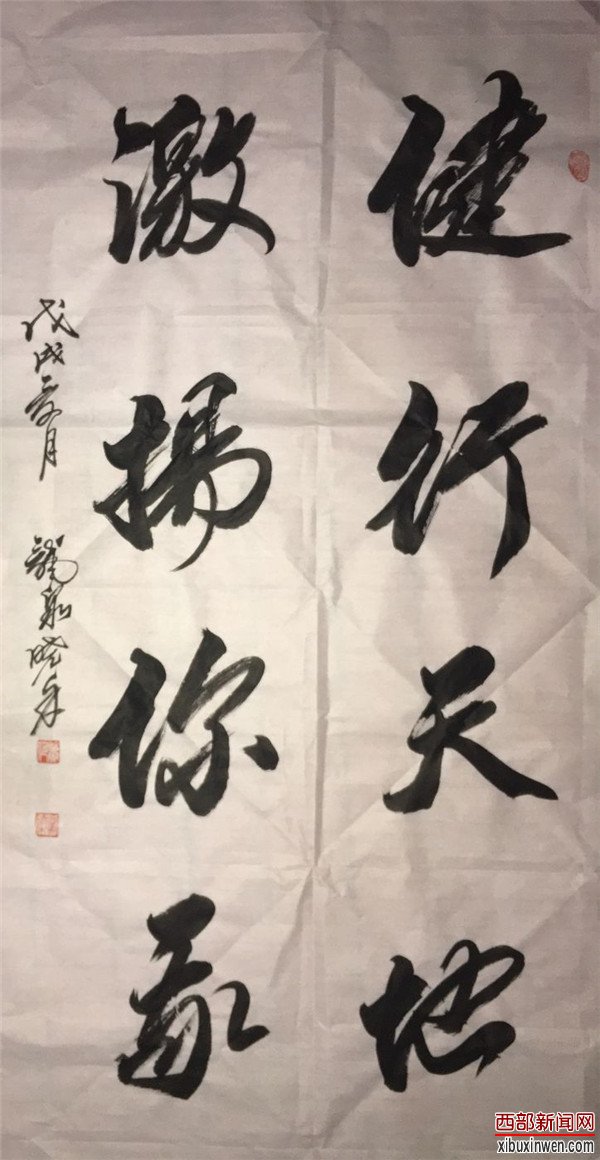 健行天地
激揚你我
戊戌夏月
龍泉曉
西部新闻网
xibuxinwen.com